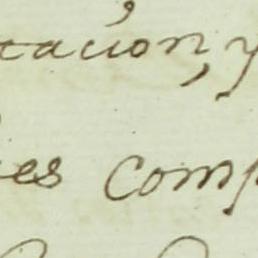 tacion, y
es comp